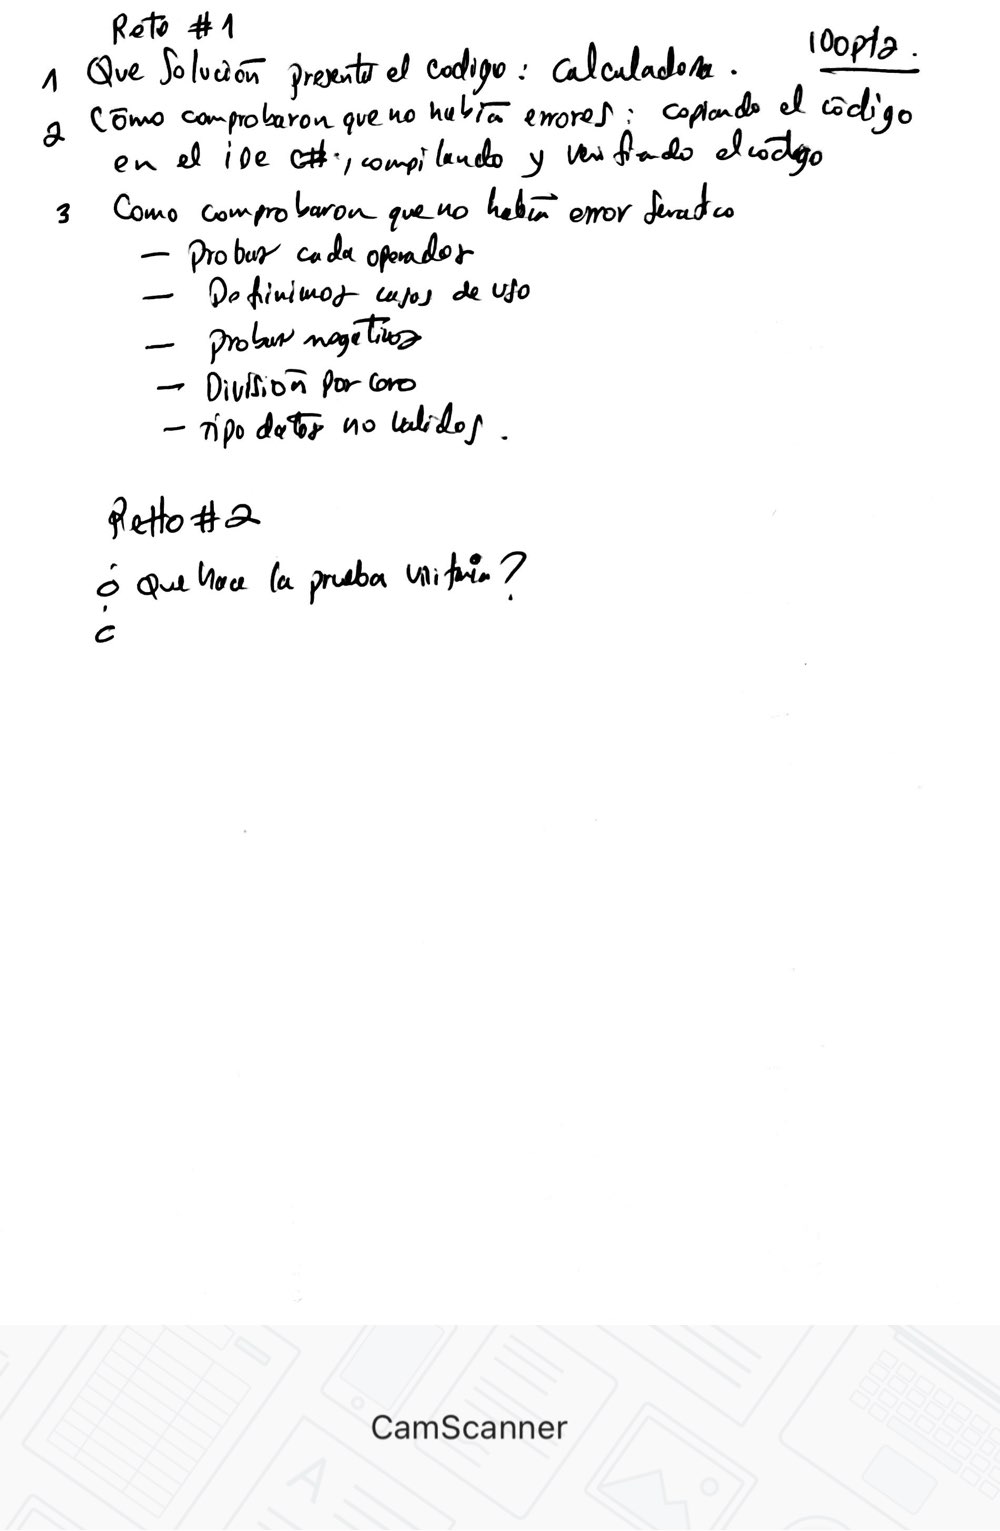 Reto #1
100pts.
1 Que Solución presenta el codigo: Calculadora.
2 Cómo comprobaron que no había errores: copiando el código
en el iDe C#, compilando y verificando el código
3 Como comprobaron que no había error
- Probar cada operador
- Definimos casos de uso
- Probar negativos
- División por cero
- Tipo datos no validos.
Retto #2
¿ Que hace la prueba unitaria?
¿
CamScanner